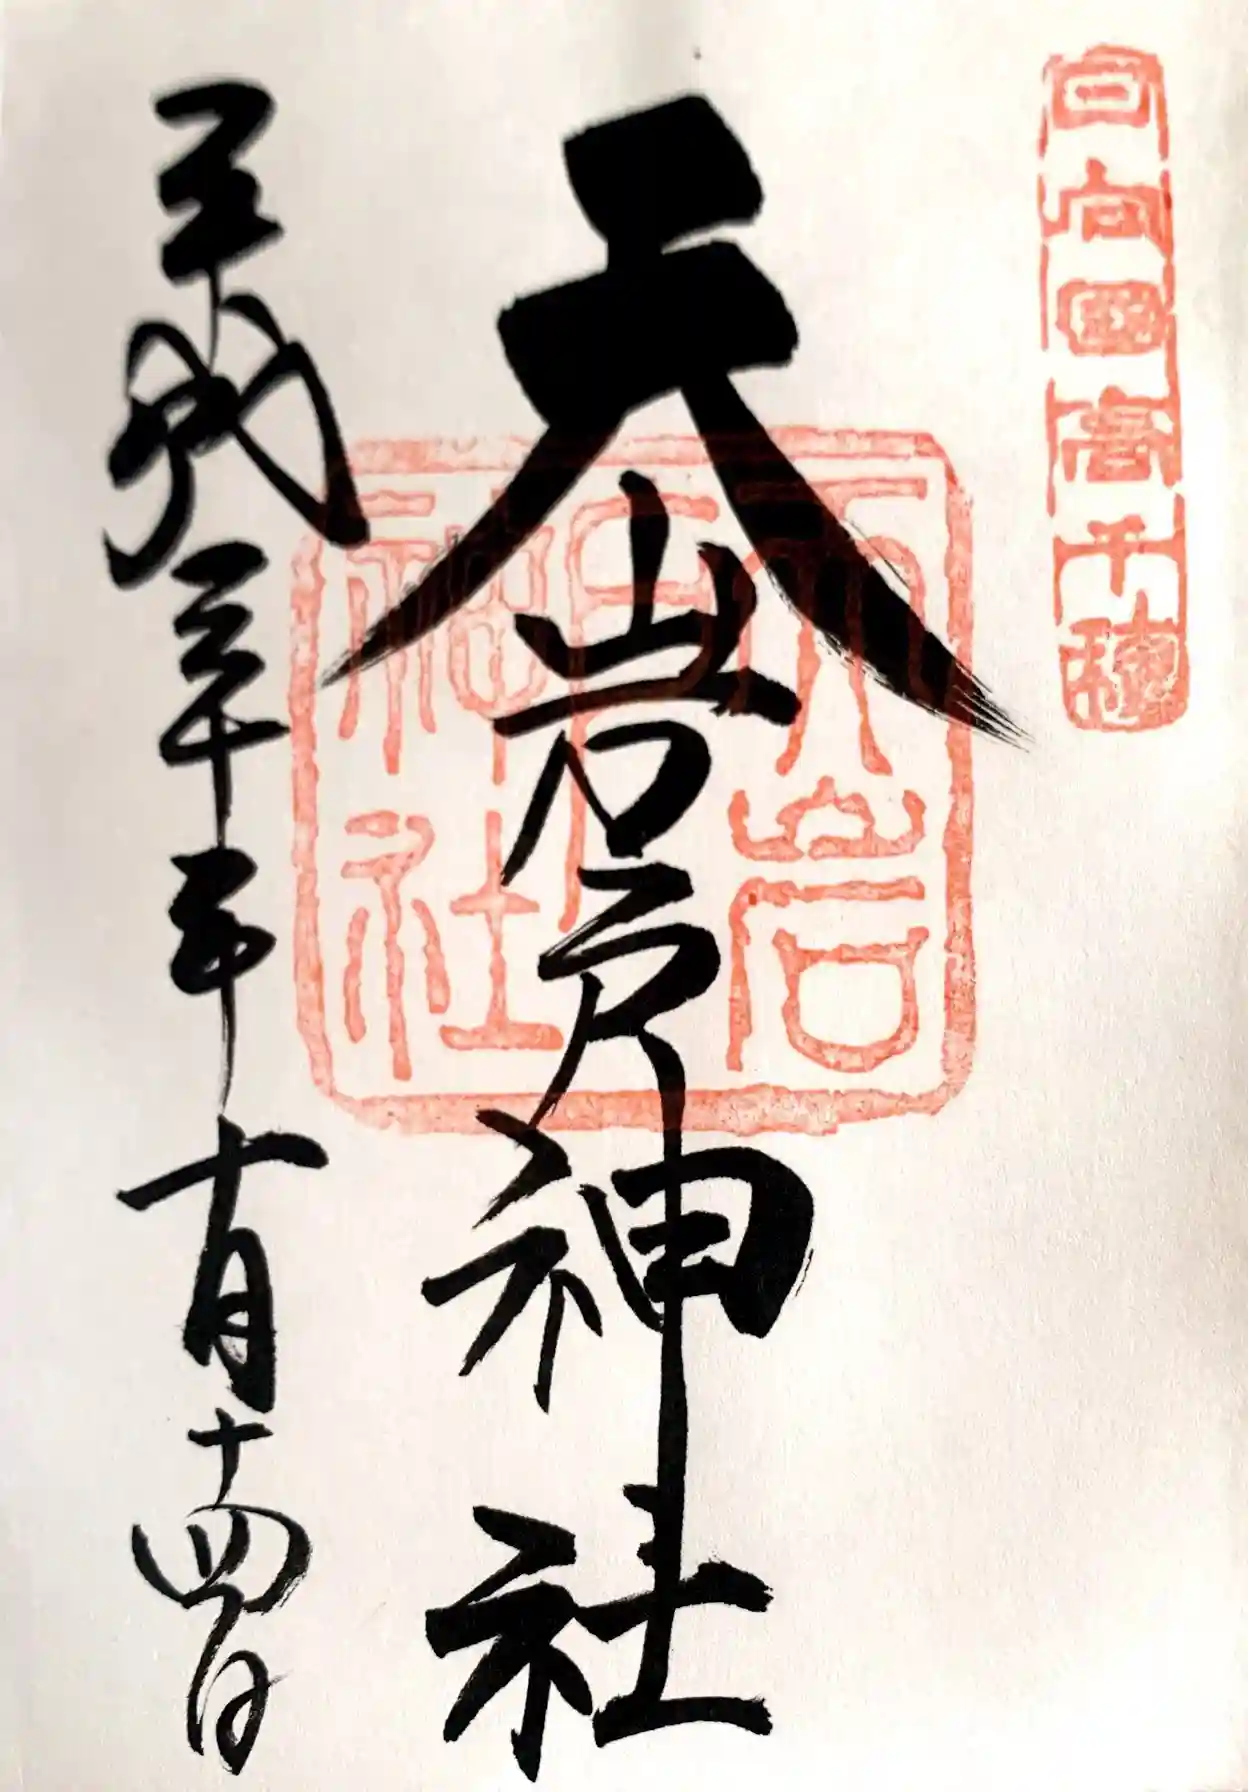 日向国高千穂
天岩戸神社
天岩戸神社
平成三十年十月十四日